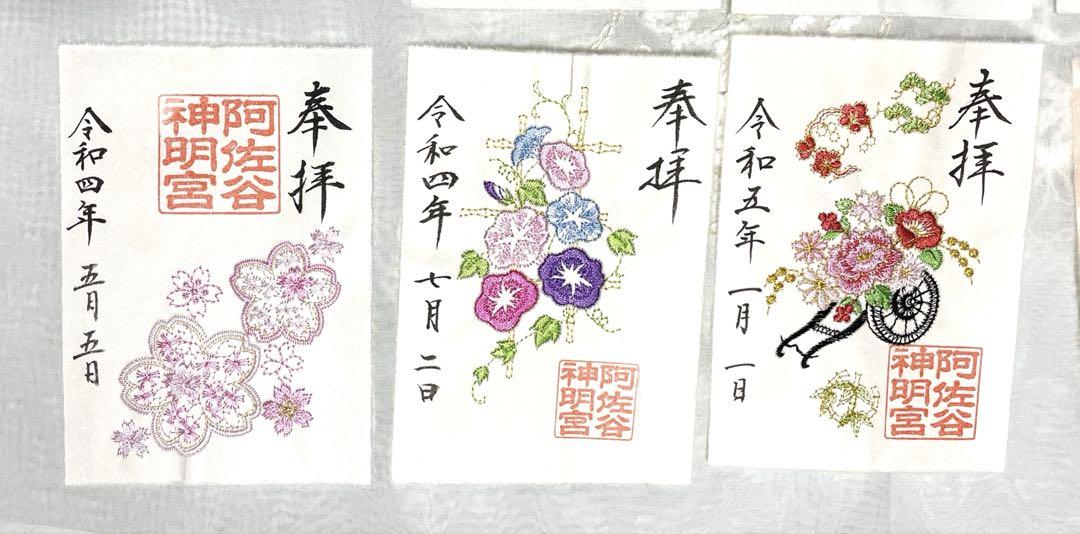 奉拝
阿佐谷
神明宮
令和四年 五月五日
奉拝
令和四年 七月二日
阿佐谷
神明宮
奉拝
令和五年 一月一日
阿佐谷
神明宮